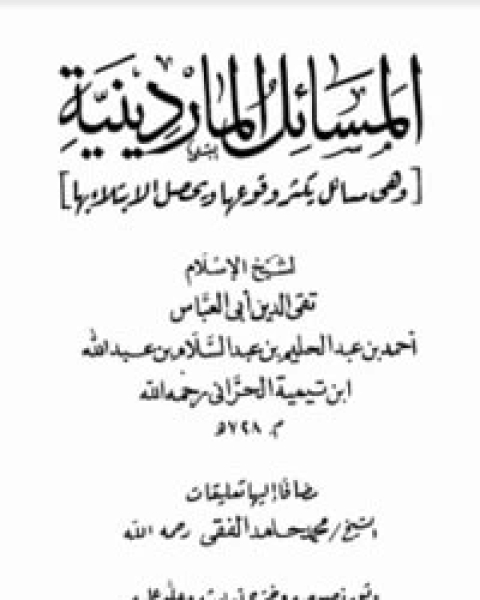 المَسَائِلُ المَاردِينِيَّة
[وهى مسائل يكثر وقوعها ويحصل الابتلاء بها]
لشيخ الإسلام
تقى الدين أبى العبَّاس
أحمد بن عبد الحليم بن عبد السَّلَام بن عبد الله
ابن تيمية الحرَّانى رحمه الله
م ٧٢٨ هـ
مضافًا إليها تعليقات
الشيخ/ محمد حامد الفقى رحمه الله
وثق نصوصه وخرج